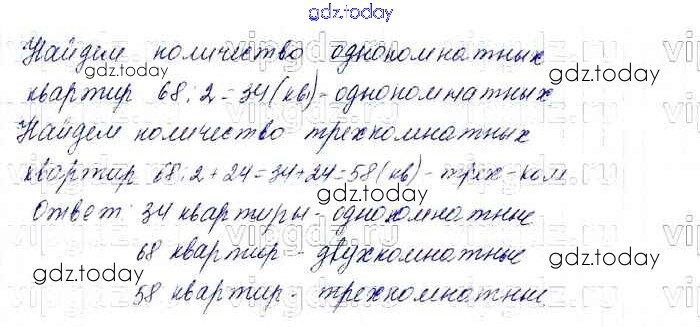 gdz.today
Найдем количество однокомнатных
gdz.today
квартир 68:2=34(кв)-однокомнатных
gdz.today
Найдем количество трехкомнатных
квартир 68:2+24=34+24=58(кв)-трех-ком
Ответ: 34 квартиры-однокомнатные
gdz.today
68 квартир - двухкомнатные
gdz.today
gdz.today
58 квартир - трехкомнатные